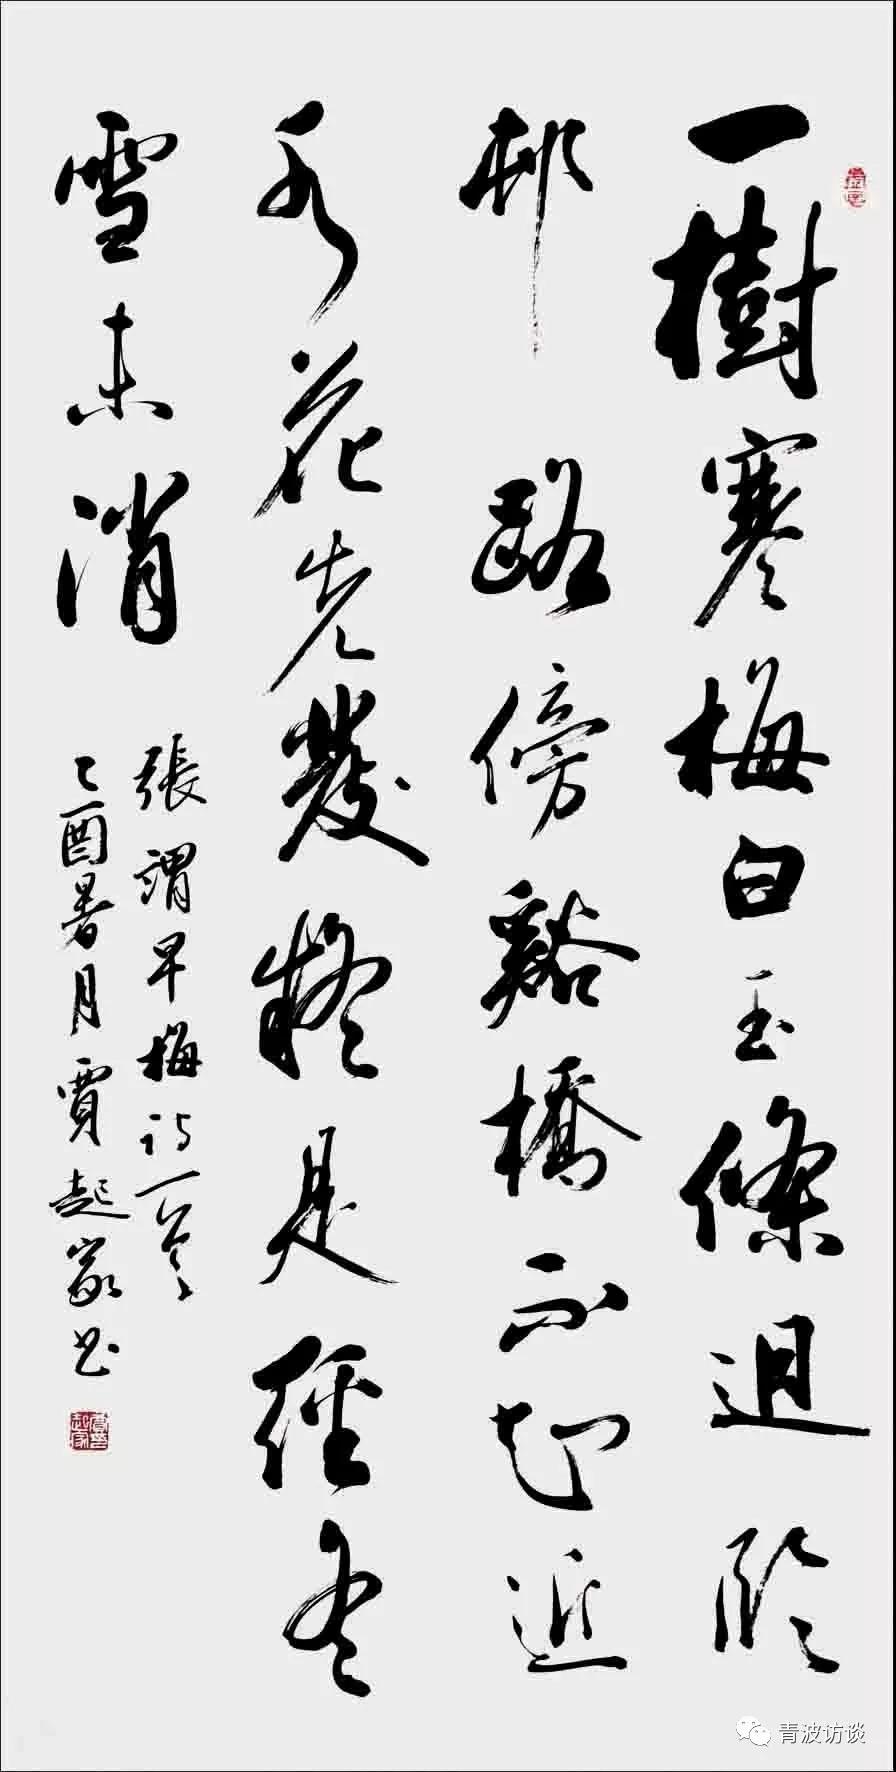 一樹寒梅白玉條迥臨
邨路傍谿橋不知近
水花先發疑是經冬
雪未消
張謂早梅诗一首
乙酉暑月賈起家书
青波访谈